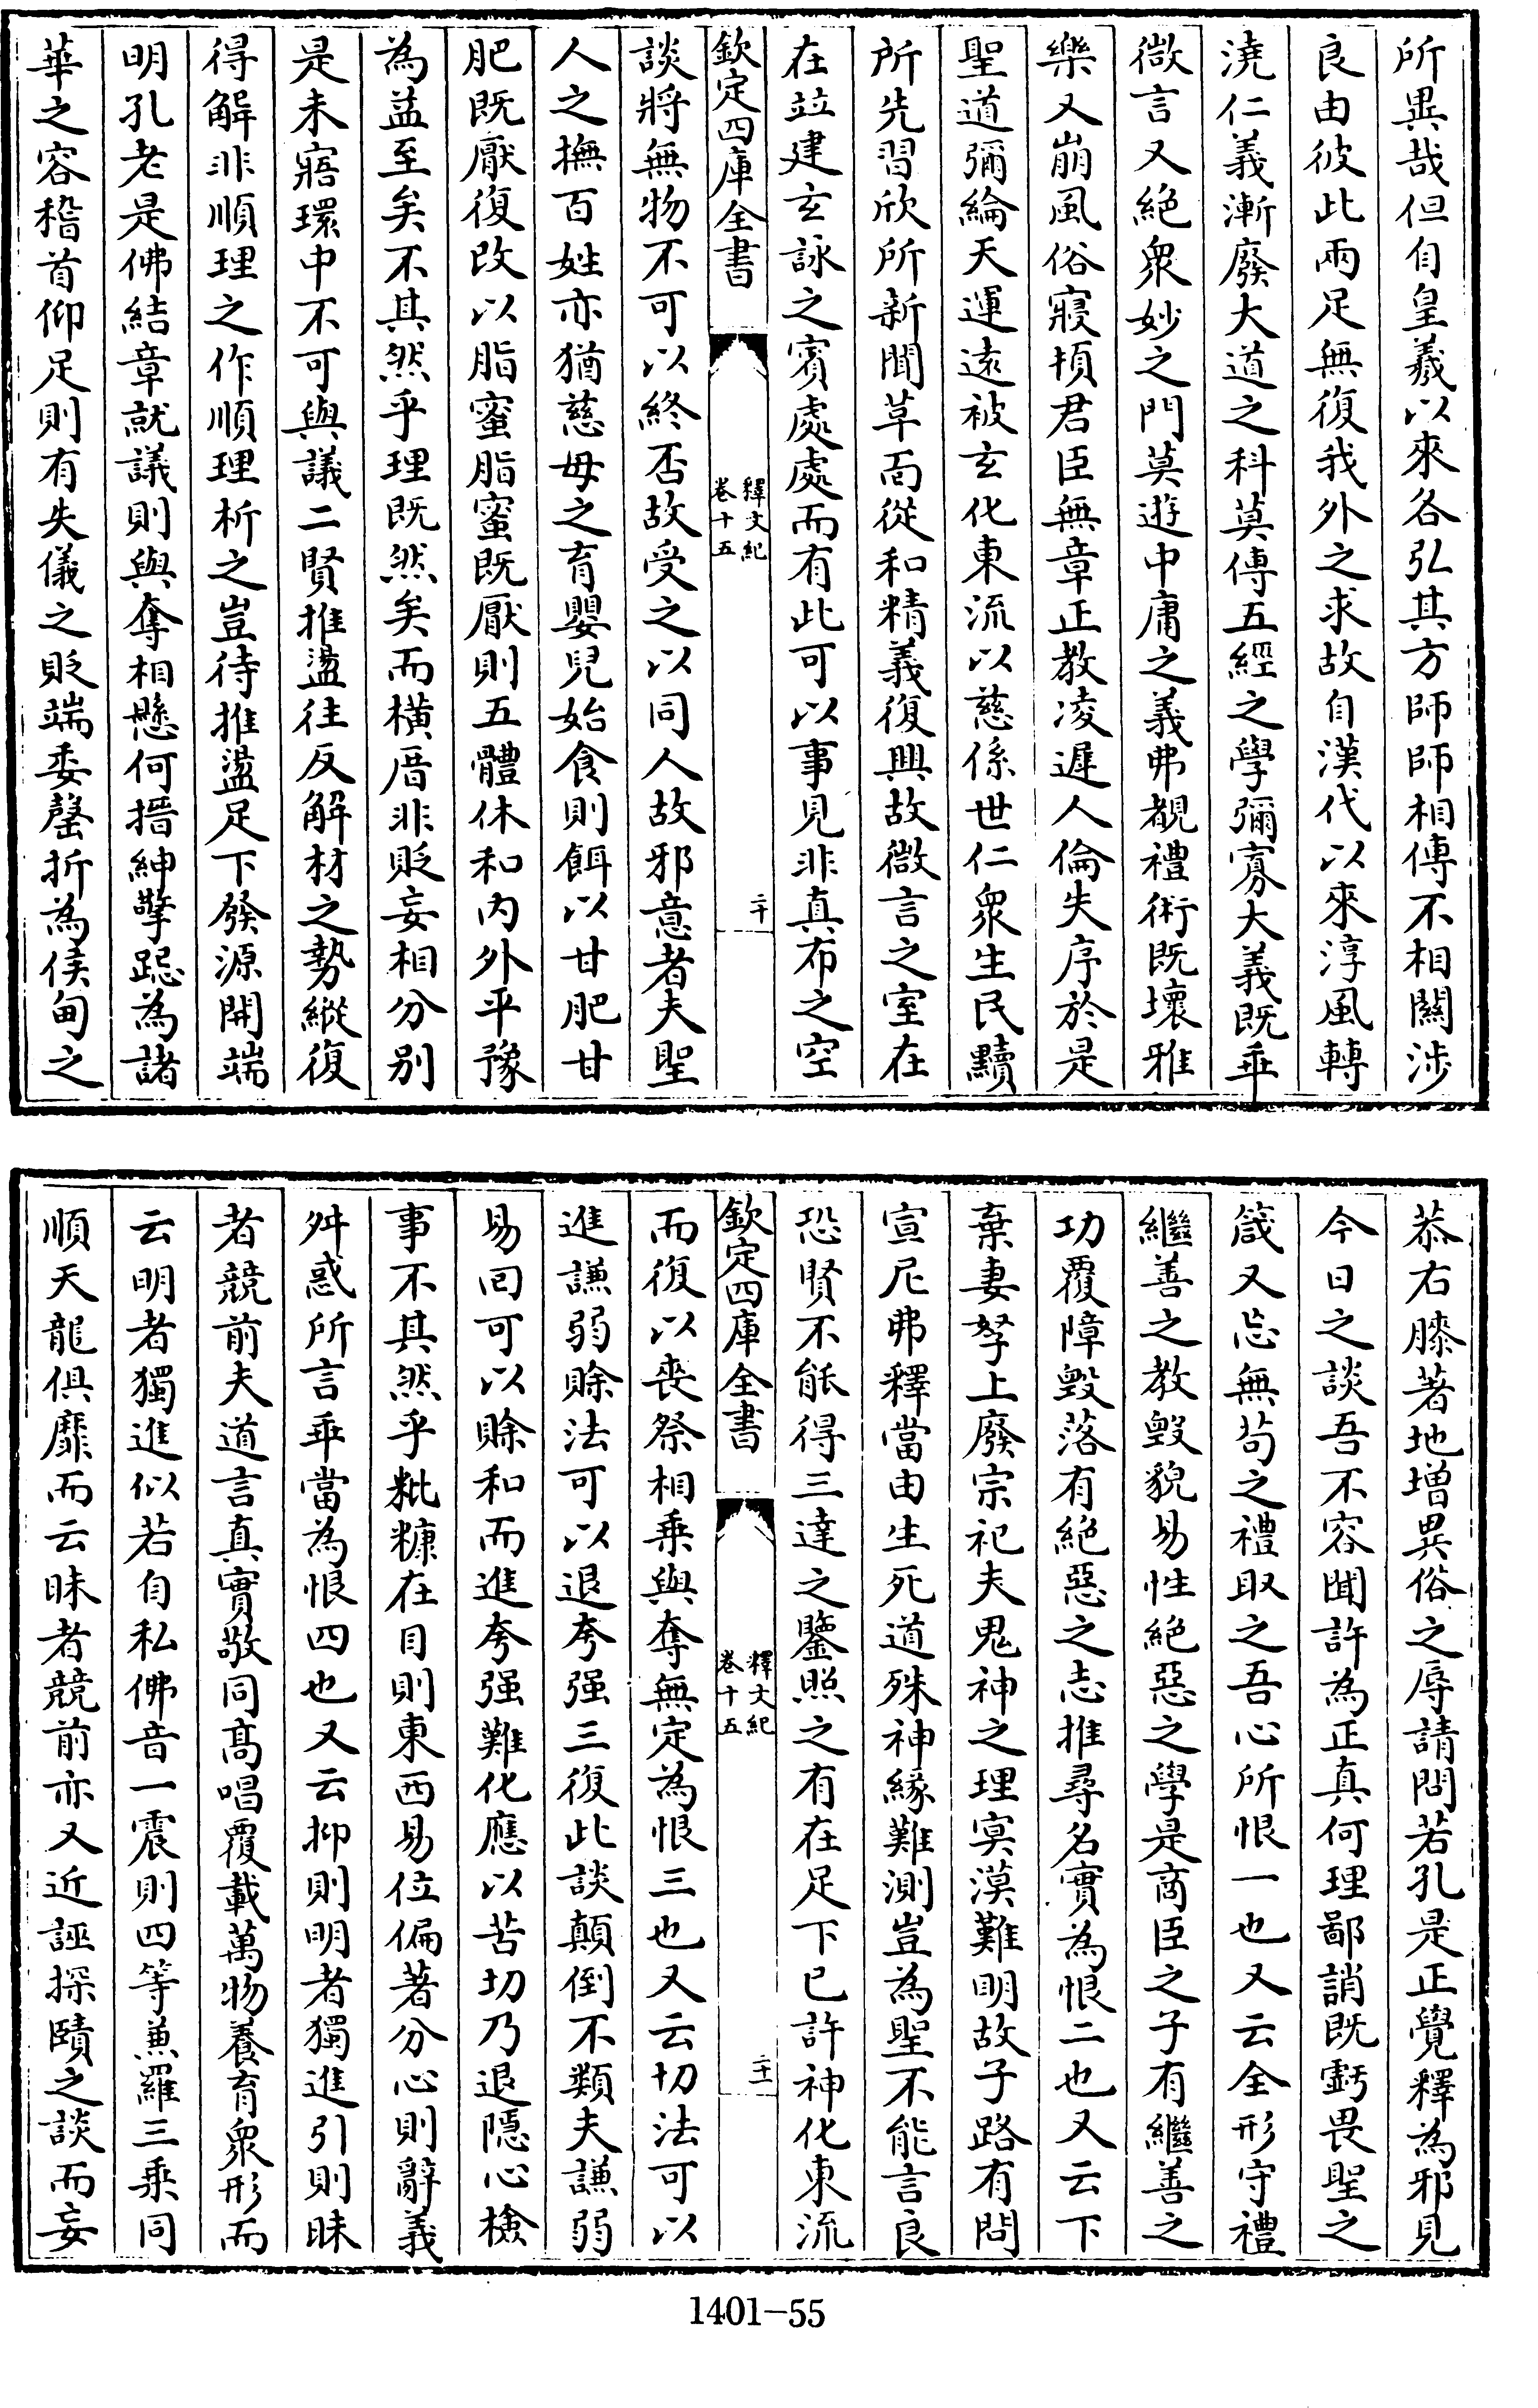 所異哉但自皇羲以來各弘其方師師相傳不相關涉
良由彼此兩足無復我外之求故自漢代以來淳風轉
澆仁義漸廢大道之科莫傳五經之學彌寡大義既乖
微言又絶衆妙之門莫遊中庸之義弗覩禮術既壞雅
樂又崩風俗寢頓君臣無章正教凌遲人倫失序於是
聖道彌綸天運逺被玄化東流以慈係世仁衆生民黷
所先習欣所新聞草面從和精義復興故微言之室在
在竝建玄詠之賓處處而有此可以事見非真布之空
欽定四庫全書
釋文紀
卷十五
二十
談將無物不可以終否故受之以同人故邪意者夫聖
人之撫百姓亦猶慈母之育嬰兒始食則餌以甘肥甘
肥既厭復改以脂蜜脂蜜既厭則五體休和内外平豫
為益至矣不其然乎理既然矣而横厝非貶妄相分别
是未寤環中不可與議二賢推盪往反解材之勢縱復
得解非順理之作順理析之豈待推盪足下發源開端
明孔老是佛結章就議則與奪相懸何搢紳擎跽為諸
華之容稽首仰足則有失儀之貶端委罄折為侯甸之
恭右膝著地增異俗之辱請問若孔是正覺釋為邪見
今日之談吾不容聞許為正真何理鄙誚既虧畏聖之
箴又忘無茍之禮取之吾心所恨一也又云全形守禮
繼善之教毁貌易性絶惡之學是商臣之子有繼善之
功覆障毁落有絶惡之志推尋名實為恨二也又云下
棄妻孥上廢宗祀夫鬼神之理㝠漠難明故子路有問
宣尼弗釋當由生死道殊神緣難測豈為聖不能言良
恐賢不能得三達之鑒照之有在足下已許神化東流
欽定四庫全書
釋文紀
卷十五
二十一
而復以喪祭相乗與奪無定為恨三也又云切法可以
進謙弱賒法可以退夸强三復此談顛倒不類夫謙弱
易囘可以賒和而進夸强難化應以苦切乃退隱心檢
事不其然乎粃糠在目則東西易位偏著分心則辭義
舛惑所言乖當為恨四也又云抑則明者獨進引則昧
者競前夫道言真實敬同髙唱覆載萬物養育衆形而
云明者獨進似若自私佛音一震則四等兼羅三乗同
順天龍俱靡而云昧者競前亦又近誣探賾之談而妄
1401-55